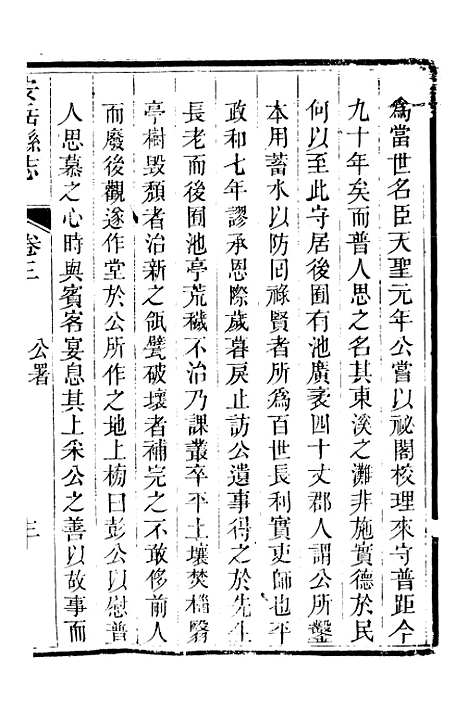 爲當世名臣天聖元年公嘗以祕閣校理來守普距今
九十年矣而普人思之名其東溪之灘非施實德於民
何以至此守居後囿有池廣袤四十丈郡人謂公所鑿
本用蓄水以防囘祿賢者所爲百世長利實吏師也平
政和七年謬承恩際歲暮戾止訪公遺事得之於先生
長老而後囿池亭荒穢不治乃課叢卒平土壤焚檣翳
亭樹毁頽者治新之瓴甓破壞者補完之不敢侈前人
而廢後觀遂作堂於公所作之地上榜曰彭公以慰普
人思慕之心時與賓客宴息其上采公之善以故事而
安岳縣志
卷三
公署
三